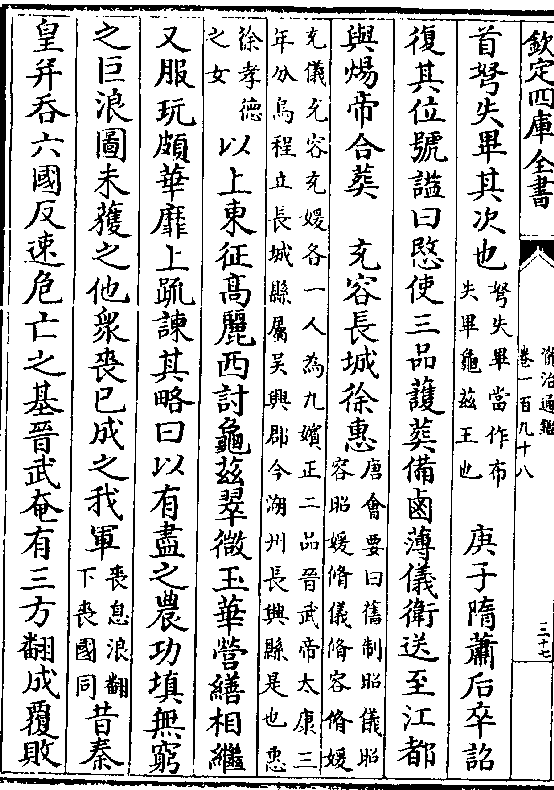 欽定四庫全書
資治通鑑
卷一百九十八
三十七
首弩失畢其次也
弩失畢當作布
失畢龜茲王也
庚子隋蕭后卒詔
復其位號諡曰愍使三品護葬備鹵薄儀衛送至江都
與煬帝合葬　充容長城徐惠
唐會要曰舊制昭儀昭
容昭媛脩儀脩容脩媛
充儀充容充媛各一人為九嬪正二品晉武帝太康三
年分烏程立長城縣屬吳興郡今湖州長興縣是也惠
徐孝德
之女
以上東征髙麗西討龜茲翠微玉華營繕相繼
又服玩頗華靡上疏諫其略曰以有盡之農功填無窮
之巨浪圖未獲之他衆喪已成之我軍
喪息浪翻
下喪國同
昔秦
皇并吞六國反速危亡之基晉武奄有三方翻成覆敗